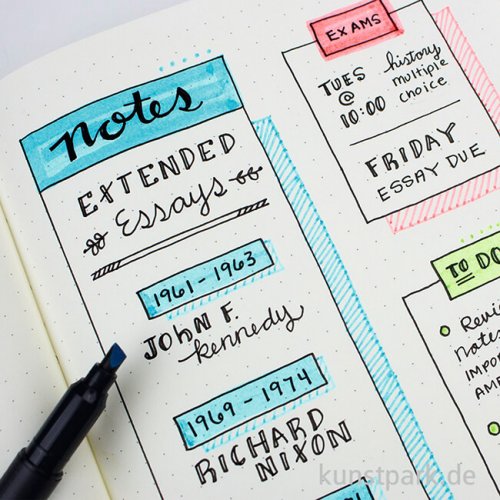 notes
EXTENDED
Essays
1961 - 1963
JOHN F.
kennedy
1969 - 1974
RICHARD
NIXON
EXAMS
TUES
@
10:00
history
multiple
choice
FRIDAY
ESSAY DUE
TO DO
notes
kunstpark.de